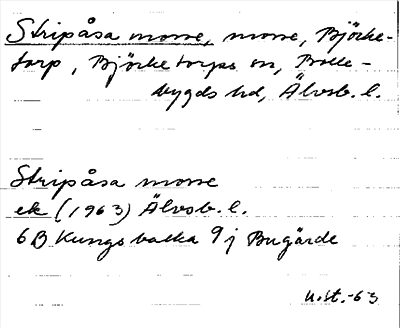 Stripåsa mosse, mosse, Björke-
torp, Björketorps sn, Bolle-
bygds hd, Älvsb. l.
Stripåsa mosse
ek (1963) Älvsb. l.
6B Kungsbacka 9j Bugärde
U.St.-63